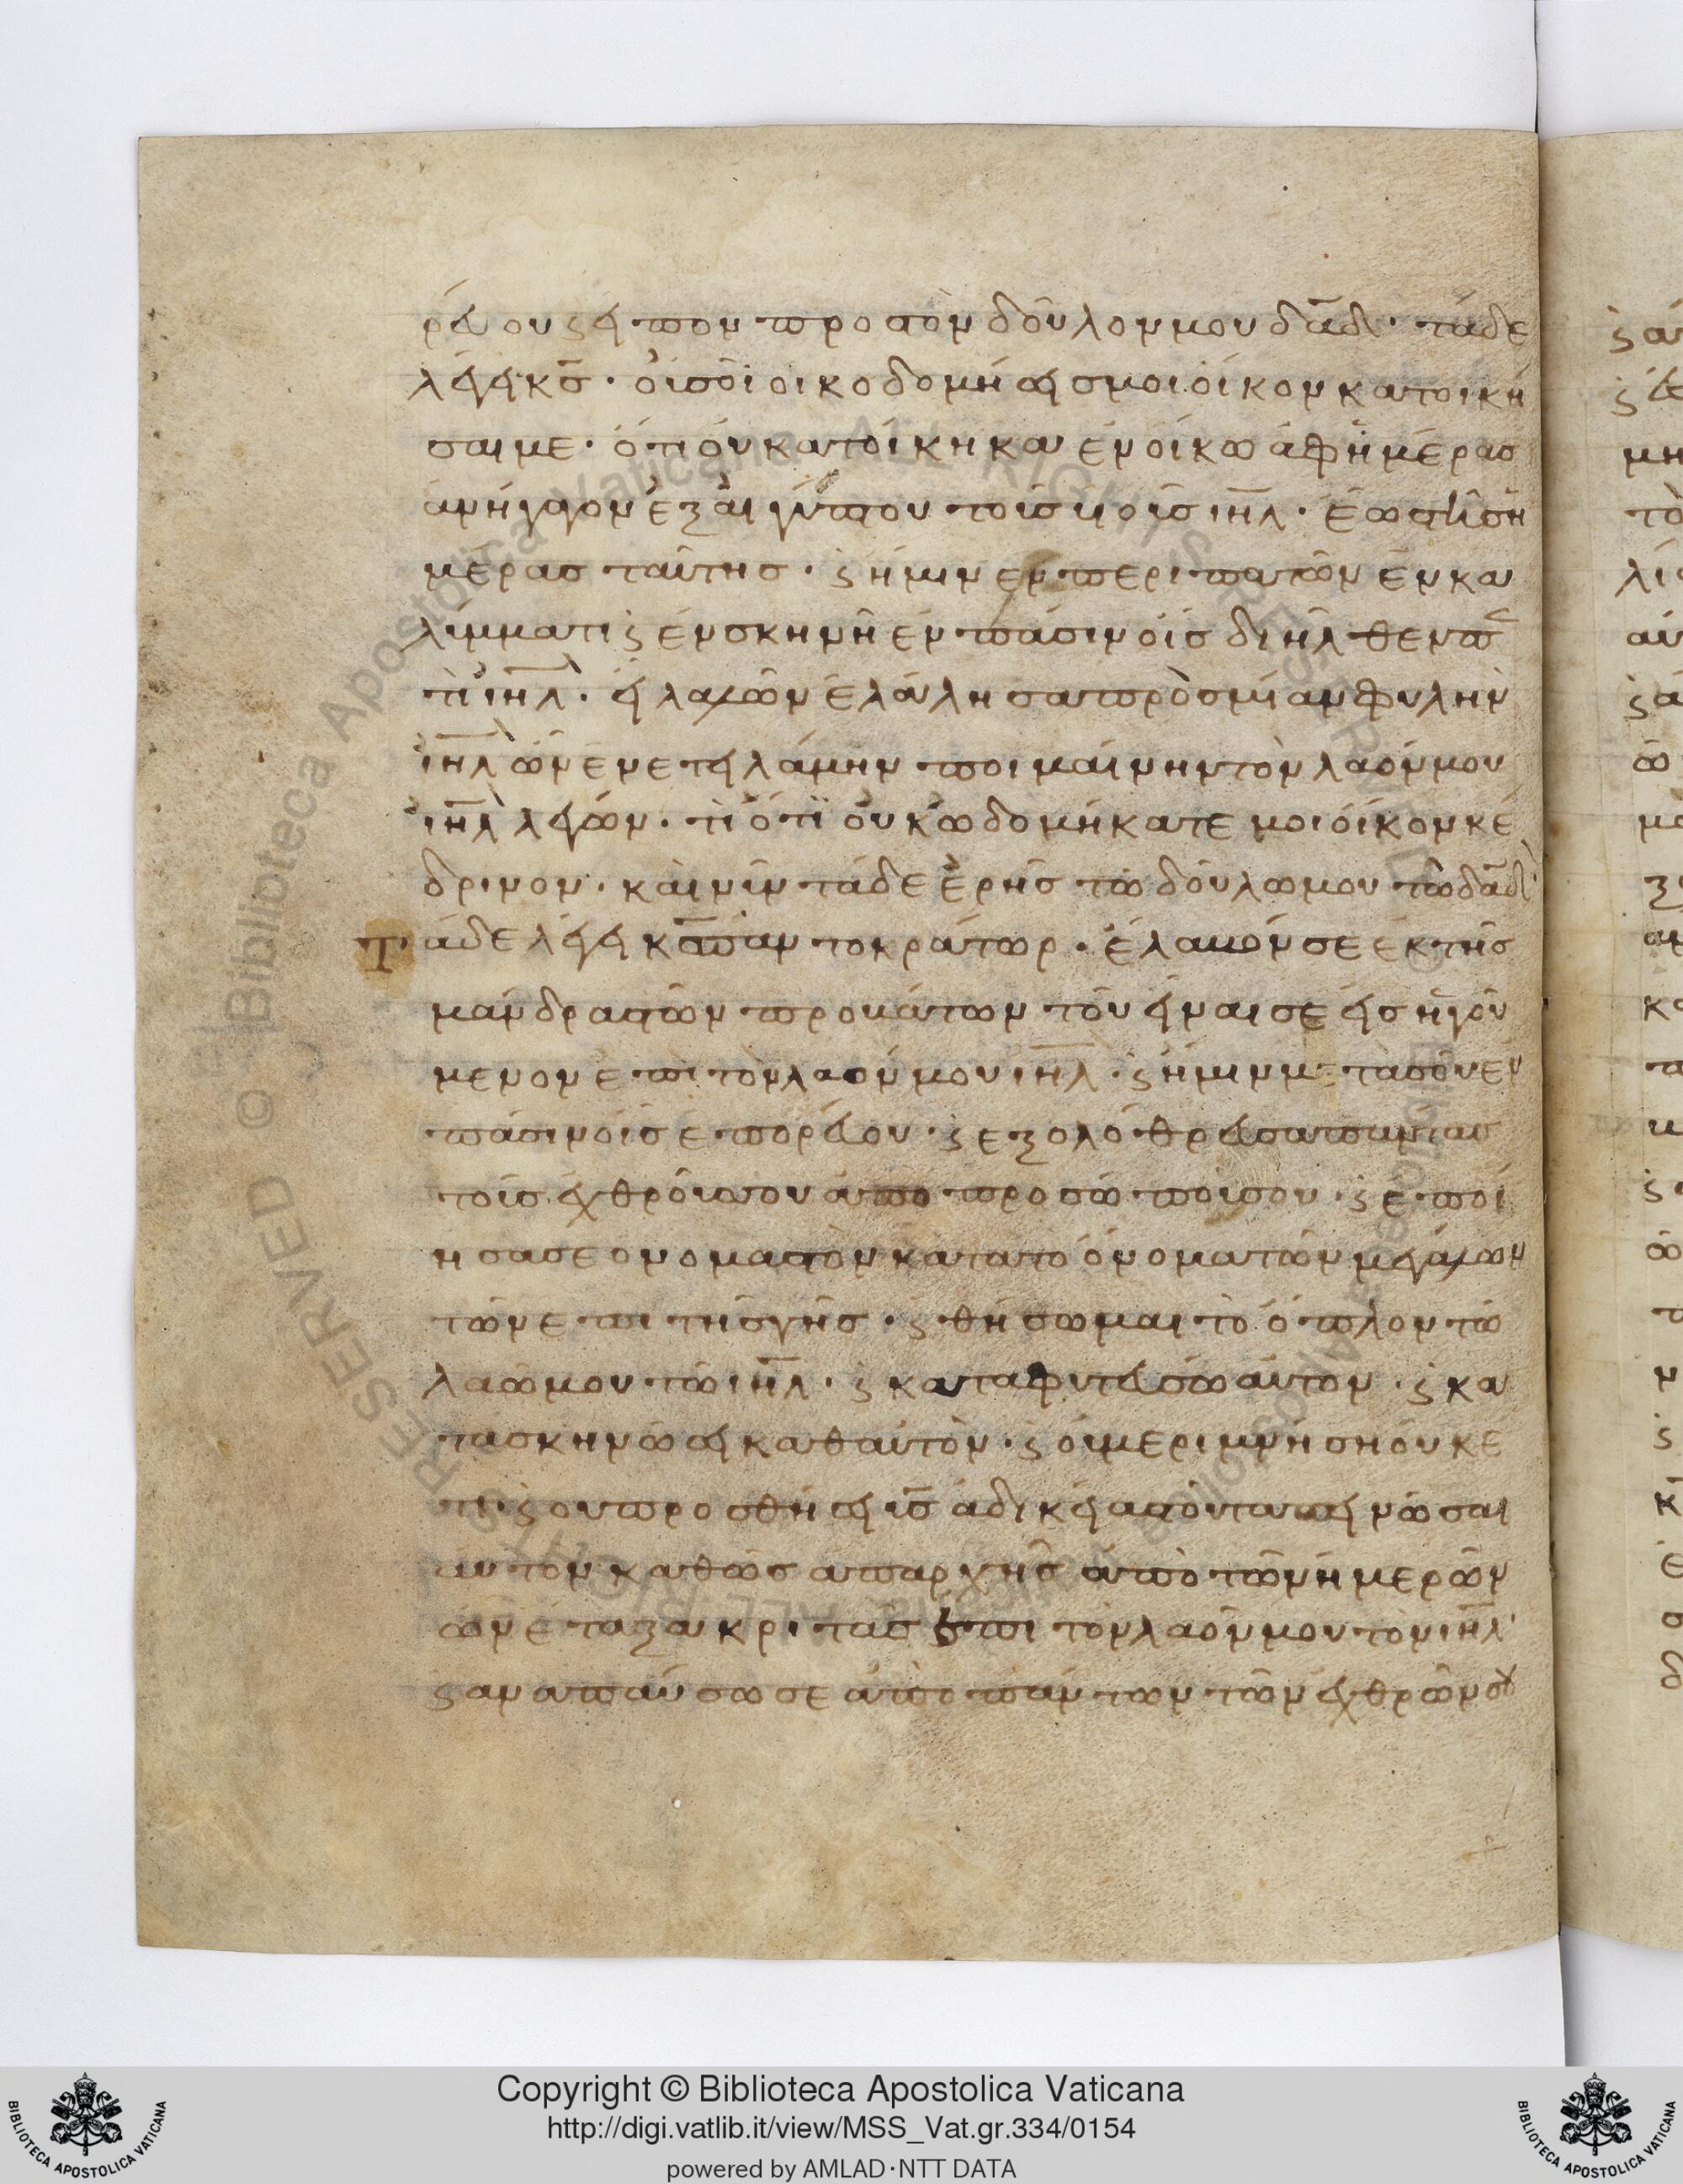 ρεύου ϛ εἶπον προσ τὸν δοῦλον μου δᾱδ· τάδε
λέγει κ̄σ̄· οὐ σοὶ οἰκοδομήσεισ μοι οἶκον κατοικῆ
σαι με· ὅτι οὐ κατοίκηκα ἐν οἴκω ἀφ ἡμέρασ
ἀνήγαγον ἐξ αἰγύπτου τοὺσ υἱοὺσ ι̅η̅λ̅· ἕωσ τῆσ ἡ
μέρασ ταύτησ· ϛ ἤμην ἐνπεριπατῶν ἐν κα
λύμματι ϛ ἐν σκηνῆ ἐν πάσιν οἷσ διῆλθεν π
τὶ ι̅η̅λ̅· εἰ λαλῶν ἐλάλησα πρὸσ μίαν φυλὴν
ι̅η̅λ̅ ὧν ἐνετειλάμην ποιμαίνην τὸν λαόν μου
ι̅η̅λ̅ λέγων· τί ὅτι οὐκ ὠδομήκατε μοι οἶκον κέ
δρινον· καὶ νῦν τάδε ἐρῆσ τῶ δούλω μου τῶ δᾱδ
Τάδε λέγει κ̄σ̄ παντοκράτωρ· ἔλαβόν σε ἐκ τῆσ
μάνδρασ τῶν προβάτων τοῦ εἶναι σε εἰσ ἡγού
μενον ἐπὶ τὸν λαόν μου ι̅η̅λ̅· ϛ ἤμην μετὰ σοῦ ἐν
πάσιν οἷσ ἐπορεύου· ϛ ἐξολόθρευσα πάντασ
τοὺσ ἐχθρούσ σου ἀπο προσώπου σου· ϛ ἐποί
ησα σε ονομαστὸν κατα τὸ ὄνομα τῶν μεγάλων
τῶν ἐπι τῆσ γῆσ· ϛ θήσωμαι τὸ ὅπλον τῶ
λαῶ μου τῶ ι̅η̅λ̅· ϛ καταφυτεύσω αὐτον· ϛ κα
τασκηνώσει καθ αὑτὸν· ϛ οὐ μεριμνήση οὐκε
τι ϛ ου προσθήσει υ̅σ̅ ἀδικείασ τοῦ ταπεινῶσαι
αυτον καθὼσ απαρχῆσ ἀπὸ τῶν ἡμερῶν
ὧν ἔταξα κριτὰσ ἐπι τὸν λαόν μου τὸν ι̅η̅λ̅·
ϛ αναπαύσω σε ἀπο πάντων τῶν ἐχθρῶν σου
Copyright © Biblioteca Apostolica Vaticana
http://digi.vatlib.it/view/MSS_Vat.gr.334/0154
powered by AMLAD·NTT DATA
BIBLIOTECA APOSTOLICA VATICANA
BIBLIOTECA APOSTOLICA VATICANA